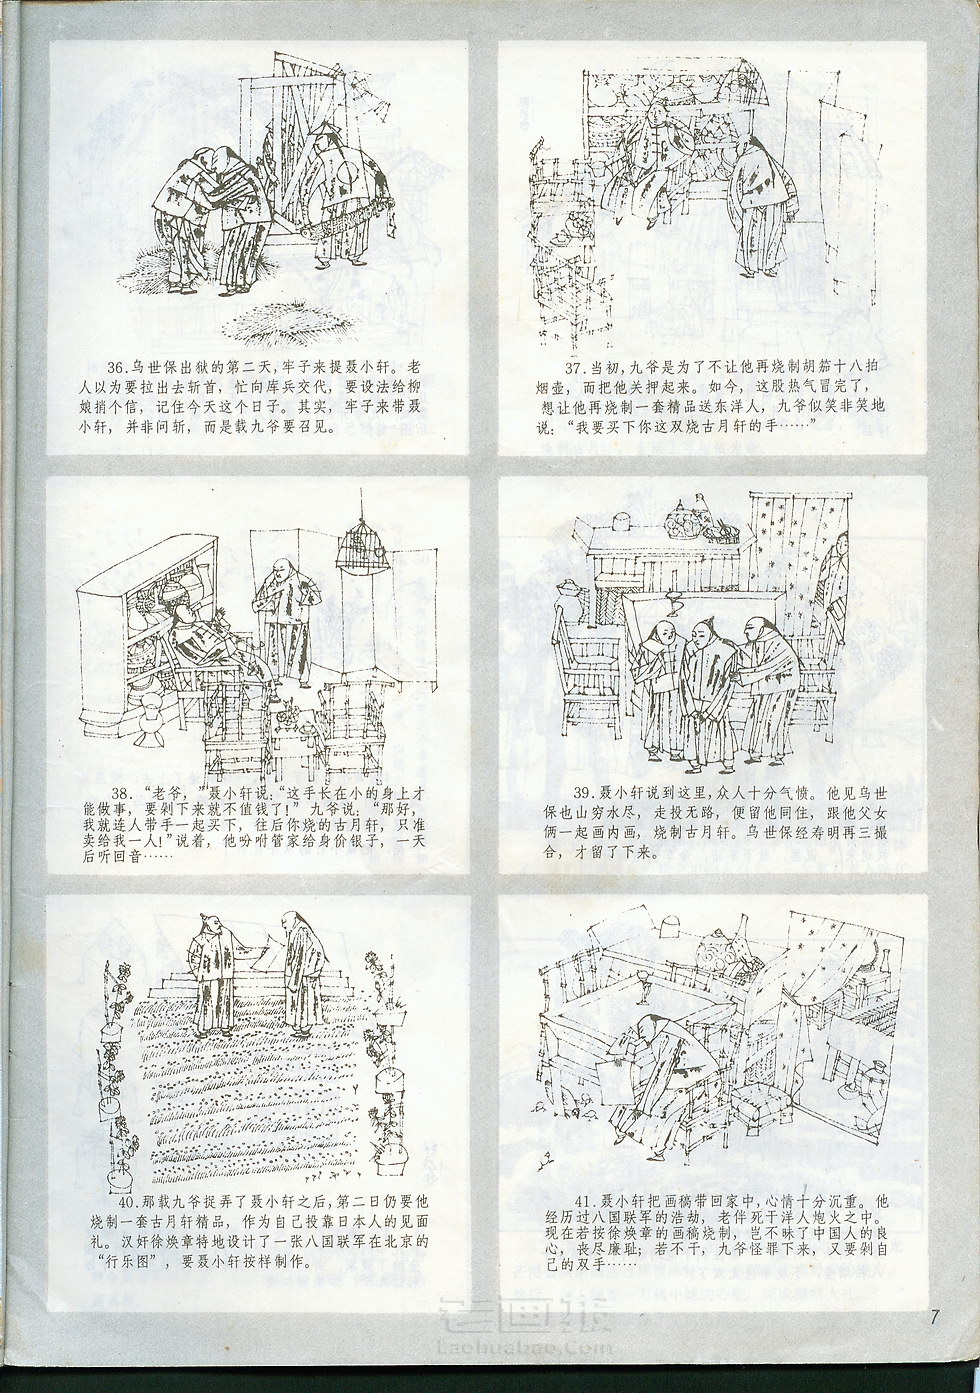 36.乌世保出狱的第二天,牢子来提聂小轩。老
人以为要拉出去斩首，忙向库兵交代，要设法给柳
娘捎个信，记住今天这个日子。其实，牢子来带聂
小轩，并非问斩，而是载九爷要召见。
37.当初,九爷是为了不让他再烧制胡笳十八拍
烟壶，而把他关押起来。如今，这股热气冒完了，
想让他再烧制一套精品送东洋人，九爷似笑非笑地
说：“我要买下你这双烧古月轩的手……”
38.“老爷，”聂小轩说:“这手长在小的身上才
能做事，要剁下来就不值钱了！”九爷说：“那好，
我就连人带手一起买下，往后你烧的古月轩，只准
卖给我一人！”说着，他吩咐管家给身价银子，一天
后听回音……
39.聂小轩说到这里,众人十分气愤。他见乌世
保也山穷水尽，走投无路，便留他同住，跟他父女
俩一起画内画，烧制古月轩。乌世保经寿明再三撮
合，才留了下来。
40.那载九爷捉弄了聂小轩之后,第二日仍要他
烧制一套古月轩精品，作为自己投靠日本人的见面
礼。汉奸徐焕章特地设计了一张八国联军在北京的
“行乐图”，要聂小轩按样制作。
41.聂小轩把画稿带回家中,心情十分沉重。他
经历过八国联军的浩劫，老伴死于洋人炮火之中。
现在若按徐焕章的画稿烧制，岂不昧了中国人的良
心，丧尽廉耻；若不干，九爷怪罪下来，又要剁自
己的双手……
7
老画报
Laohuabao.Com